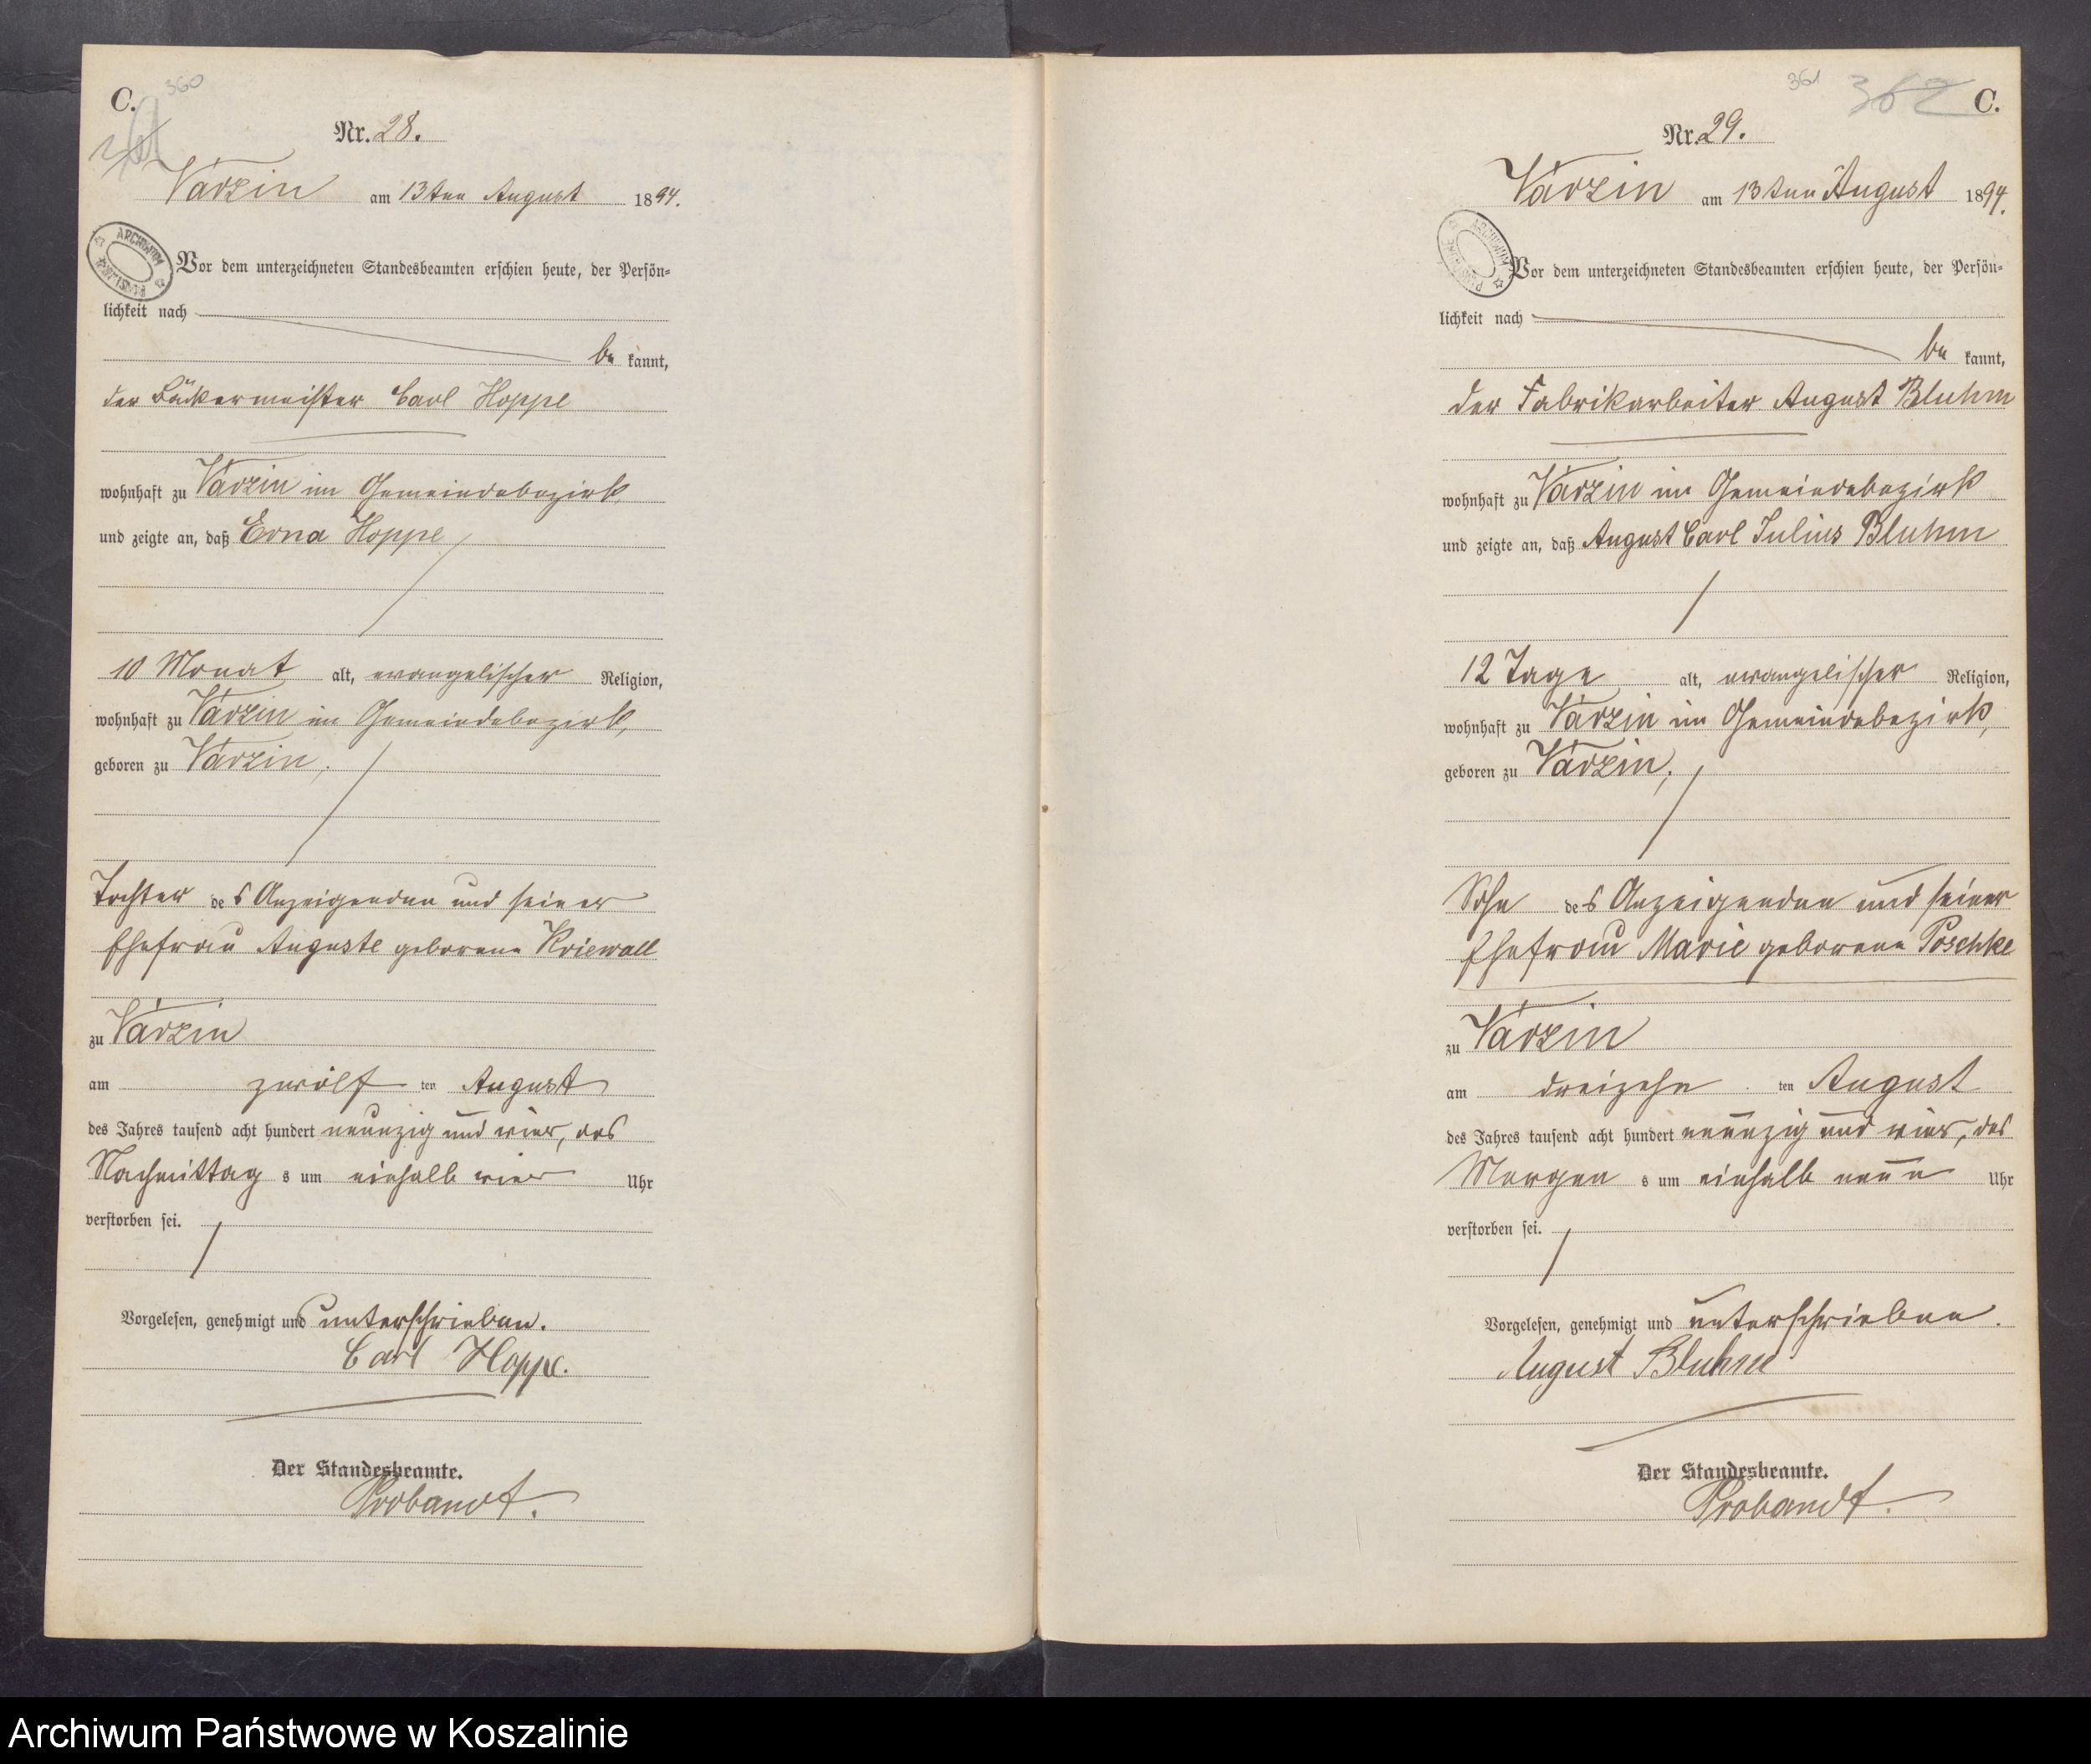 C.
360
Nr. 28.
Varzin am 13ten August 1894.
ARCHIWUM
Vor dem unterzeichneten Standesbeamten erschien heute, der Persön-
lichkeit nach
be kannt,
der Bäckermeister Carl Hoppe
wohnhaft zu Varzin im Gemeindebezirk
und zeigte an, daß Erna Hoppe
10 Monat alt, evangelischer Religion,
wohnhaft zu Varzin im Gemeindebezirk,
geboren zu Varzin,
Tochter des Anzeigenden und seiner
Ehefrau Auguste geborene Kriewall
zu Varzin
am zwölf ten August
des Jahres tausend acht hundert neunzig und vier, des
Nachmittag s um einhalb vier Uhr
verstorben sei.
Vorgelesen, genehmigt und unterschrieben.
Carl Hoppe.
Der Standesbeamte.
Probandt.
361 362 C.
Nr. 29.
Varzin am 13ten August 1894.
ARCHIWUM
Vor dem unterzeichneten Standesbeamten erschien heute, der Persön-
lichkeit nach
be kannt,
der Fabrikarbeiter August Bluhm
wohnhaft zu Varzin im Gemeindebezirk
und zeigte an, daß August Carl Julius Bluhm
12 Tage alt, evangelischer Religion,
wohnhaft zu Varzin im Gemeindebezirk,
geboren zu Varzin,
Sohn des Anzeigenden und seiner
Ehefrau Marie geborene Poschke
zu Varzin
am dreizehn ten August
des Jahres tausend acht hundert neunzig und vier, des
Morgen s um einhalb neun Uhr
verstorben sei.
Vorgelesen, genehmigt und unterschrieben.
August Bluhm
Der Standesbeamte.
Probandt.
Archiwum Państwowe w Koszalinie